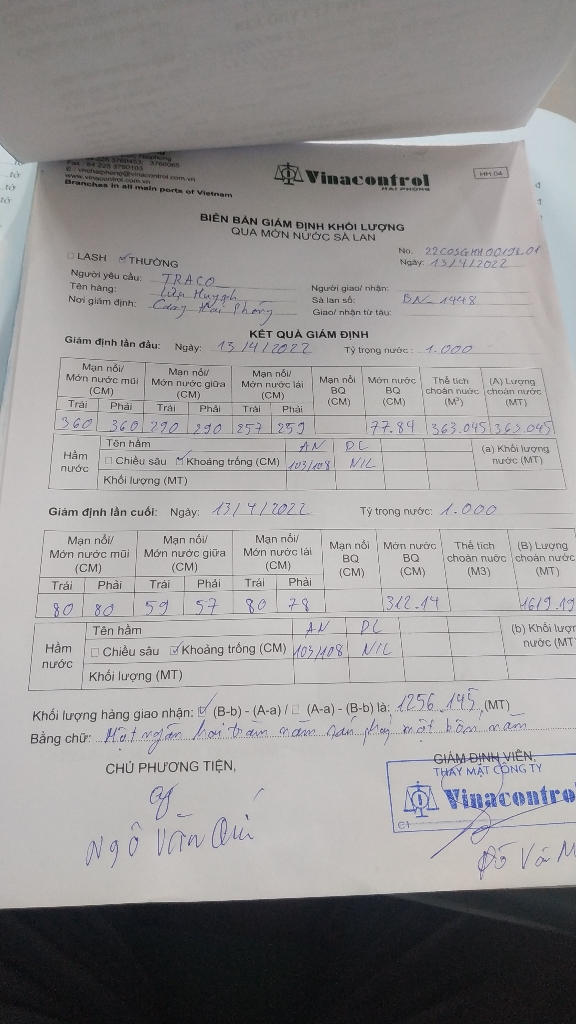 Fax: 84 225 3760103; 3760065
E: vnchaiphong@vinacontrol.com.vn
www.vinacontrol.com.vn
Branches in all main ports of Vietnam
Vinacontrol
HAI PHONG
HH.04
BIÊN BẢN GIÁM ĐỊNH KHỐI LƯỢNG
QUA MỚN NƯỚC SÀ LAN
□ LASH ☑ THƯỜNG
No. 22C05GHH00198.01
Ngày: 13/4/2022
Người yêu cầu: TRACO
Người giao/ nhận:
Tên hàng: Lưu Huỳnh
Sà lan số: BN_1448
Nơi giám định: Cảng Hải Phòng
Giao/ nhận từ tàu:
KẾT QUẢ GIÁM ĐỊNH
Giám định lần đầu: Ngày: 13/4/2022 Tỷ trọng nước: 1.000
Mạn nổi/ Mớn nước mũi (CM) Mạn nổi/ Mớn nước giữa (CM) Mạn nổi/ Mớn nước lái (CM) Mạn nổi BQ (CM) Mớn nước BQ (CM) Thể tích choán nước (M³) (A) Lượng choán nước (MT)
Trái Phải Trái Phải Trái Phải
360 360 290 290 257 259 77.84 363.045 363.045
Hầm nước
Tên hầm AN DC (a) Khối lượng nước (MT)
□ Chiều sâu ☑ Khoảng trống (CM) 103/108 NIL
Khối lượng (MT)
Giám định lần cuối: Ngày: 13/4/2022 Tỷ trọng nước: 1.000
Mạn nổi/ Mớn nước mũi (CM) Mạn nổi/ Mớn nước giữa (CM) Mạn nổi/ Mớn nước lái (CM) Mạn nổi BQ (CM) Mớn nước BQ (CM) Thể tích choán nước (M3) (B) Lượng choán nước (MT)
Trái Phải Trái Phải Trái Phải
80 80 59 57 80 78 312.14 1619.19
Hầm nước
Tên hầm AN DC (b) Khối lượng nước (MT
□ Chiều sâu ☑ Khoảng trống (CM) 103/108 NIL
Khối lượng (MT)
Khối lượng hàng giao nhận: ☑ (B-b) - (A-a) / □ (A-a) - (B-b) là: 1256.145 (MT)
Bằng chữ: Một ngàn hai trăm năm sáu phẩy một bốn năm
CHỦ PHƯƠNG TIỆN,
GIÁM ĐỊNH VIÊN,
THAY MẶT CÔNG TY
Vinacontro
Ngô Văn Quí
Đỗ Vă